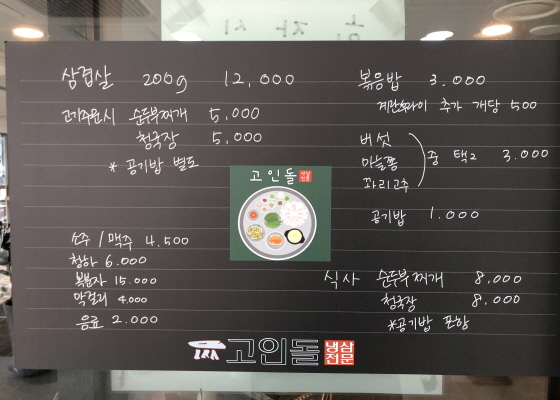 삼겹살 200g 12,000
고기주문시 순두부찌개 5,000
청국장 5,000
* 공기밥 별도
소주 / 맥주 4.500
청하 6.000
복분자 15.000
막걸리 4,000
음료 2.000
고인돌 냉삼전문
볶음밥 3.000
계란후라이 추가 개당 500
버섯
마늘쫑
꽈리고추
중 택2 3.000
공기밥 1.000
식사 순두부찌개 8.000
청국장 8.000
*공기밥 포함
고인돌 냉삼전문